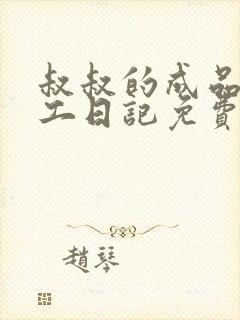 叔叔的成品
工日記免費
趙琴